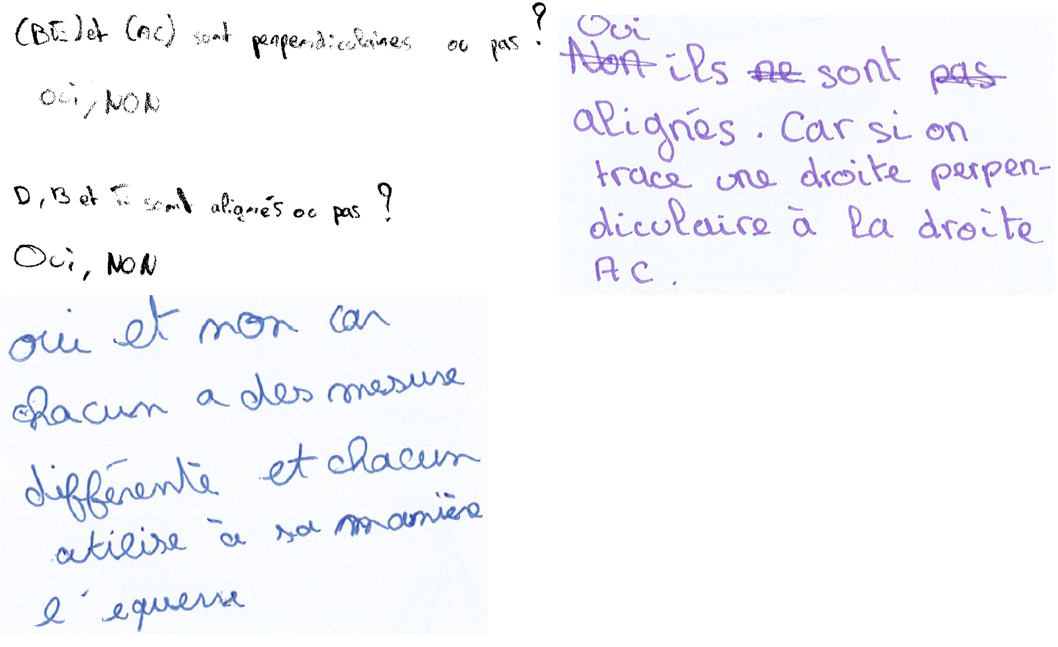 (BE) et (AC) sont perpendiculaires ou pas ?
Oui, NON
D, B et E sont alignés ou pas ?
Oui, NON
Oui
Non ils ne sont pas
alignés. Car si on
trace une droite perpen-
diculaire à la droite
AC.
oui et non car
chacun a des mesure
différente et chacun
utilise à sa manière
l'equerre